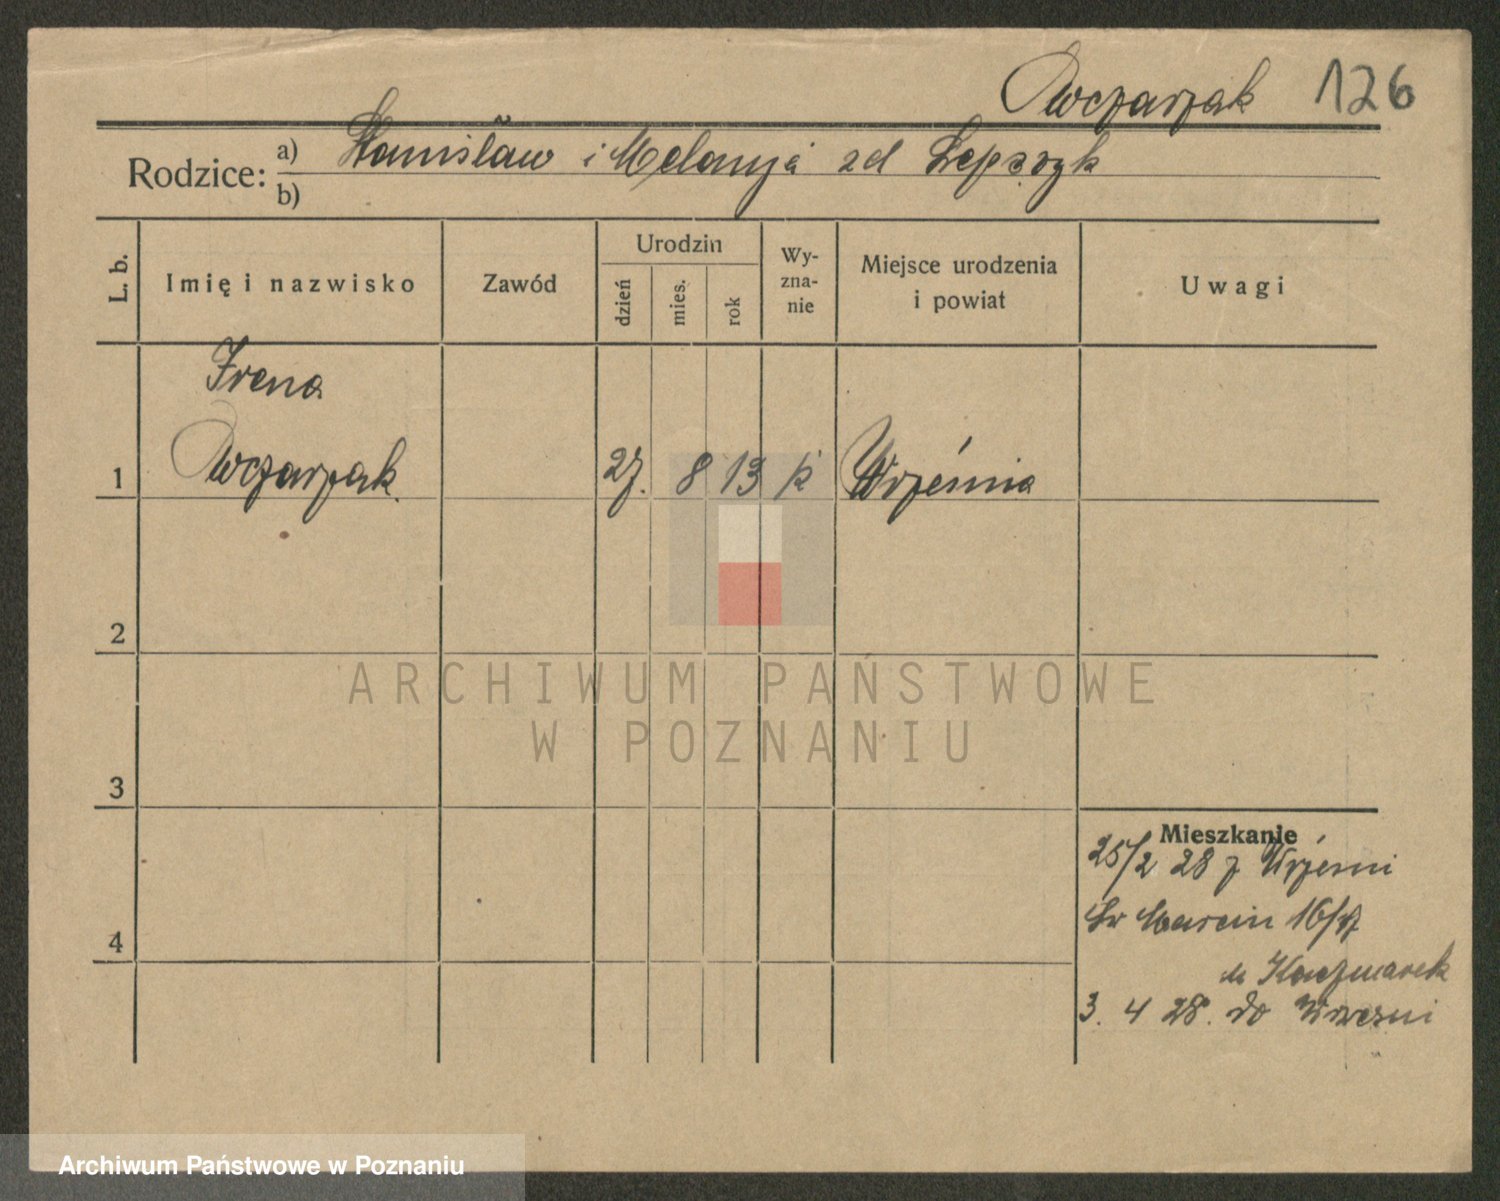 Owczarzak 126
Rodzice: a) Stanisław i Melanja zd Lepszyk
b)
L. b. Imię i nazwisko Zawód Urodzin dzień mies. rok Wy-zna-nie Miejsce urodzenia i powiat Uwagi
Irena
1 Owczarzak. 27. 8 13 k Września
2
ARCHIWUM PAŃSTWOWE
W POZNANIU
3
Mieszkanie
25/2 28 z Wrześni
Św Marcin 16/17
4
u Kaczmarek
3. 4 28. do Wrześni
Archiwum Państwowe w Poznaniu